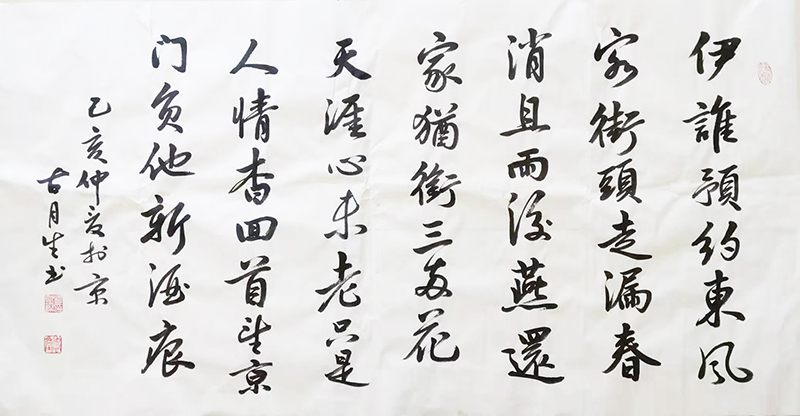 伊誰預約東風
客街頭走漏春
消且雨後燕還
家猶銜三兩花
天涯心未老只是
人情杳回首望京
门負他新酒痕
乙亥仲夏於京
古月生书